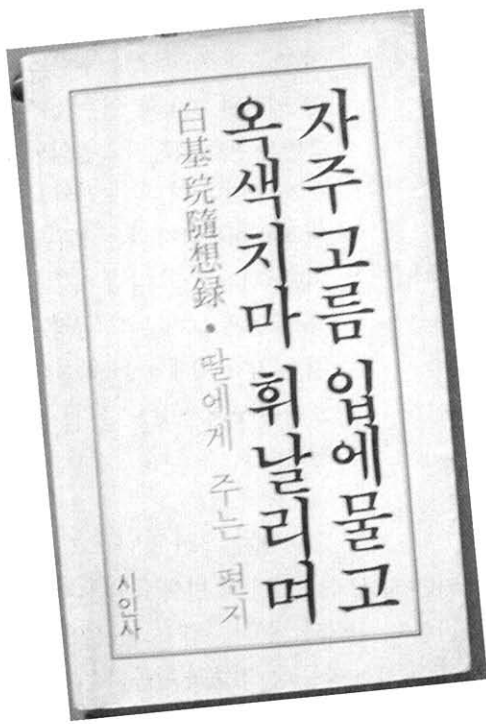 자주고름 입에물고
옥색치마 휘날리며
白基琓隨想録 • 딸에게 주는 편지
시인사